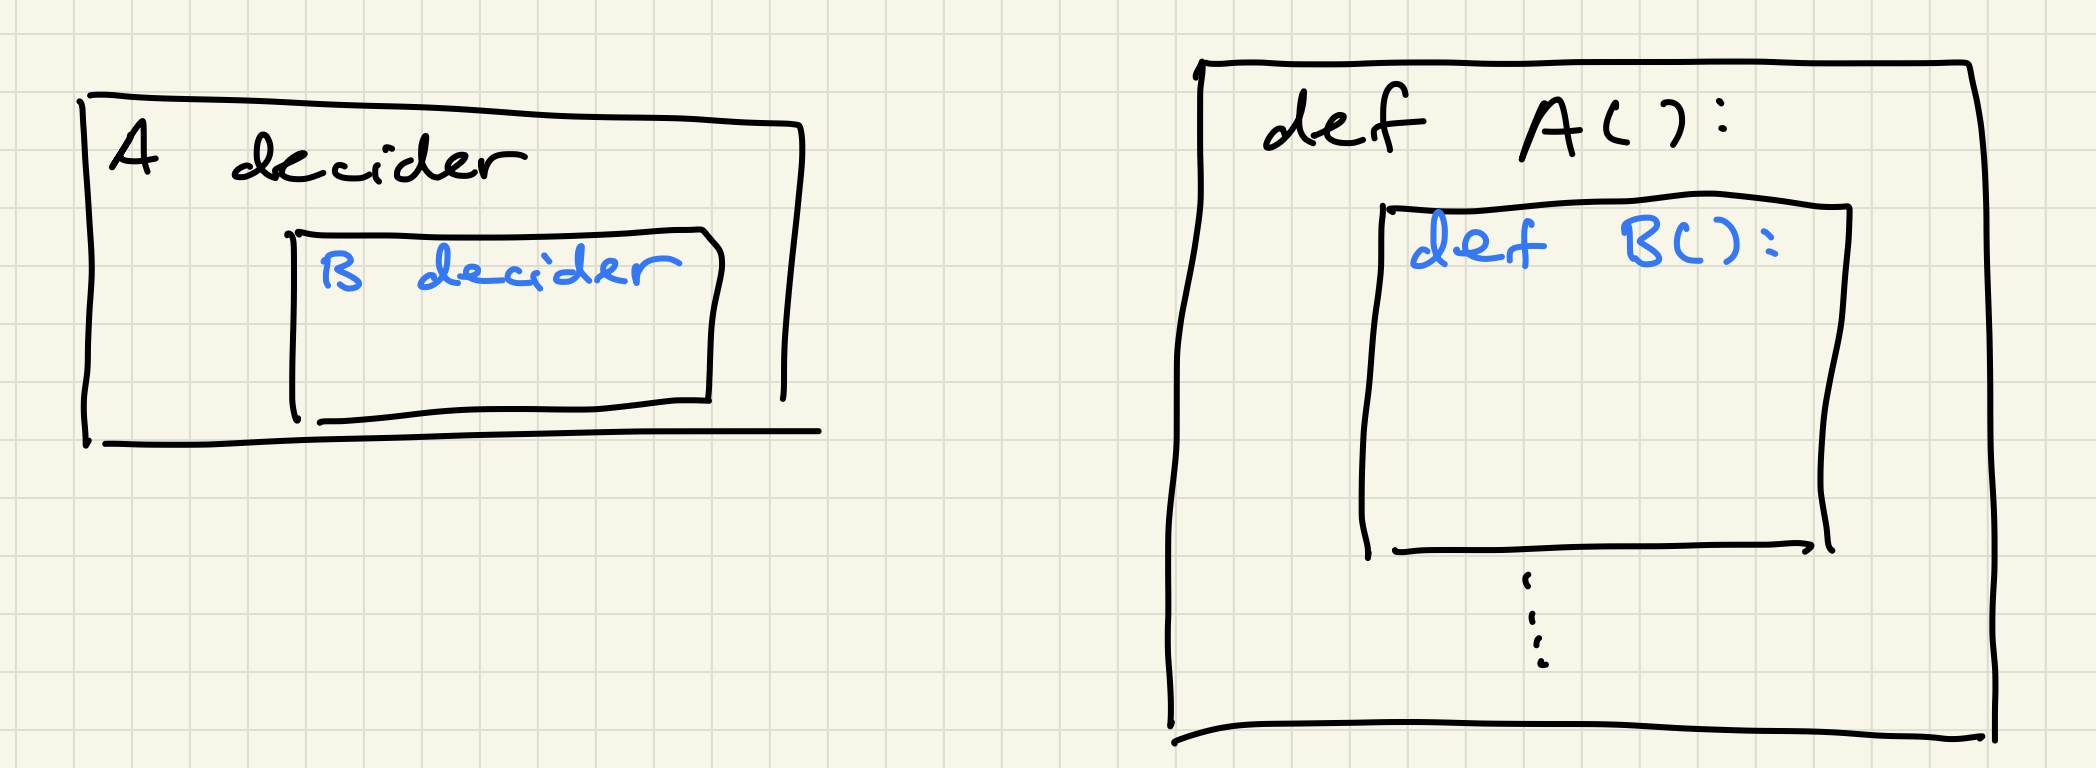 A decider
B decider
def A():
def B():